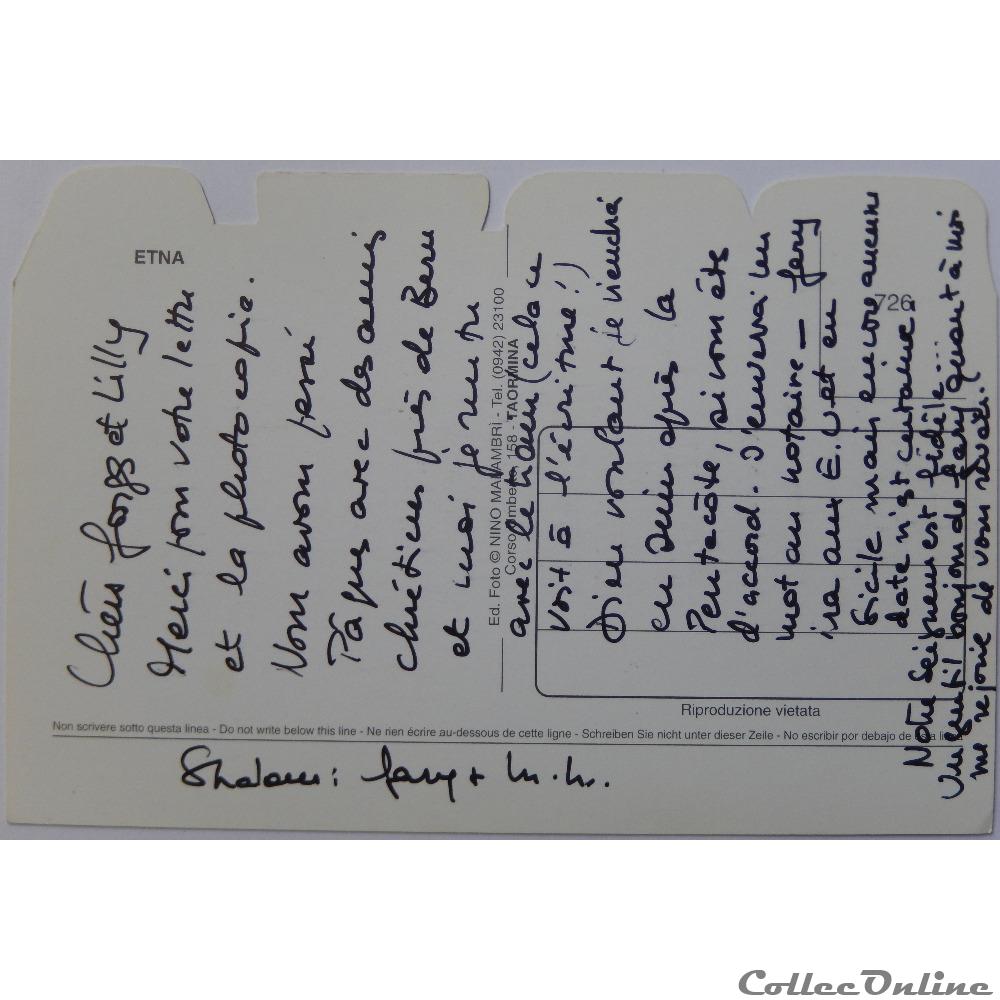 ETNA
Chers Jorgs et Lilly
Merci pour votre lettre
et la photocopie.
Nous avons passé
Pâques avec des amis
chrétiens près de Bern
et moi je rentre
avec le train (cela se
voit à l'écriture!)
Dieu voulant je viendrai
en Juin après la
Pentecôte, si vous êts
d'accord. J'enverrai un
mot au notaire – Gary
ira aux E.U et en
Sicile mais encore aucune
date n'est certaine.
Notre Seigneur est fidèle....
Un gentil bonjour de Gary, quant à moi
me rejouie de vous revoir.
Shalom: Gary + M.M.
Ed. Foto © NINO MALAMBRÌ - Tel. (0942) 23100
Corso Umberto, 158 - TAORMINA
726
Riproduzione vietata
Non scrivere sotto questa linea - Do not write below this line - Ne rien écrire au-dessous de cette ligne - Schreiben Sie nicht unter dieser Zeile - No escribir por debajo de esta linea
CollecOnline